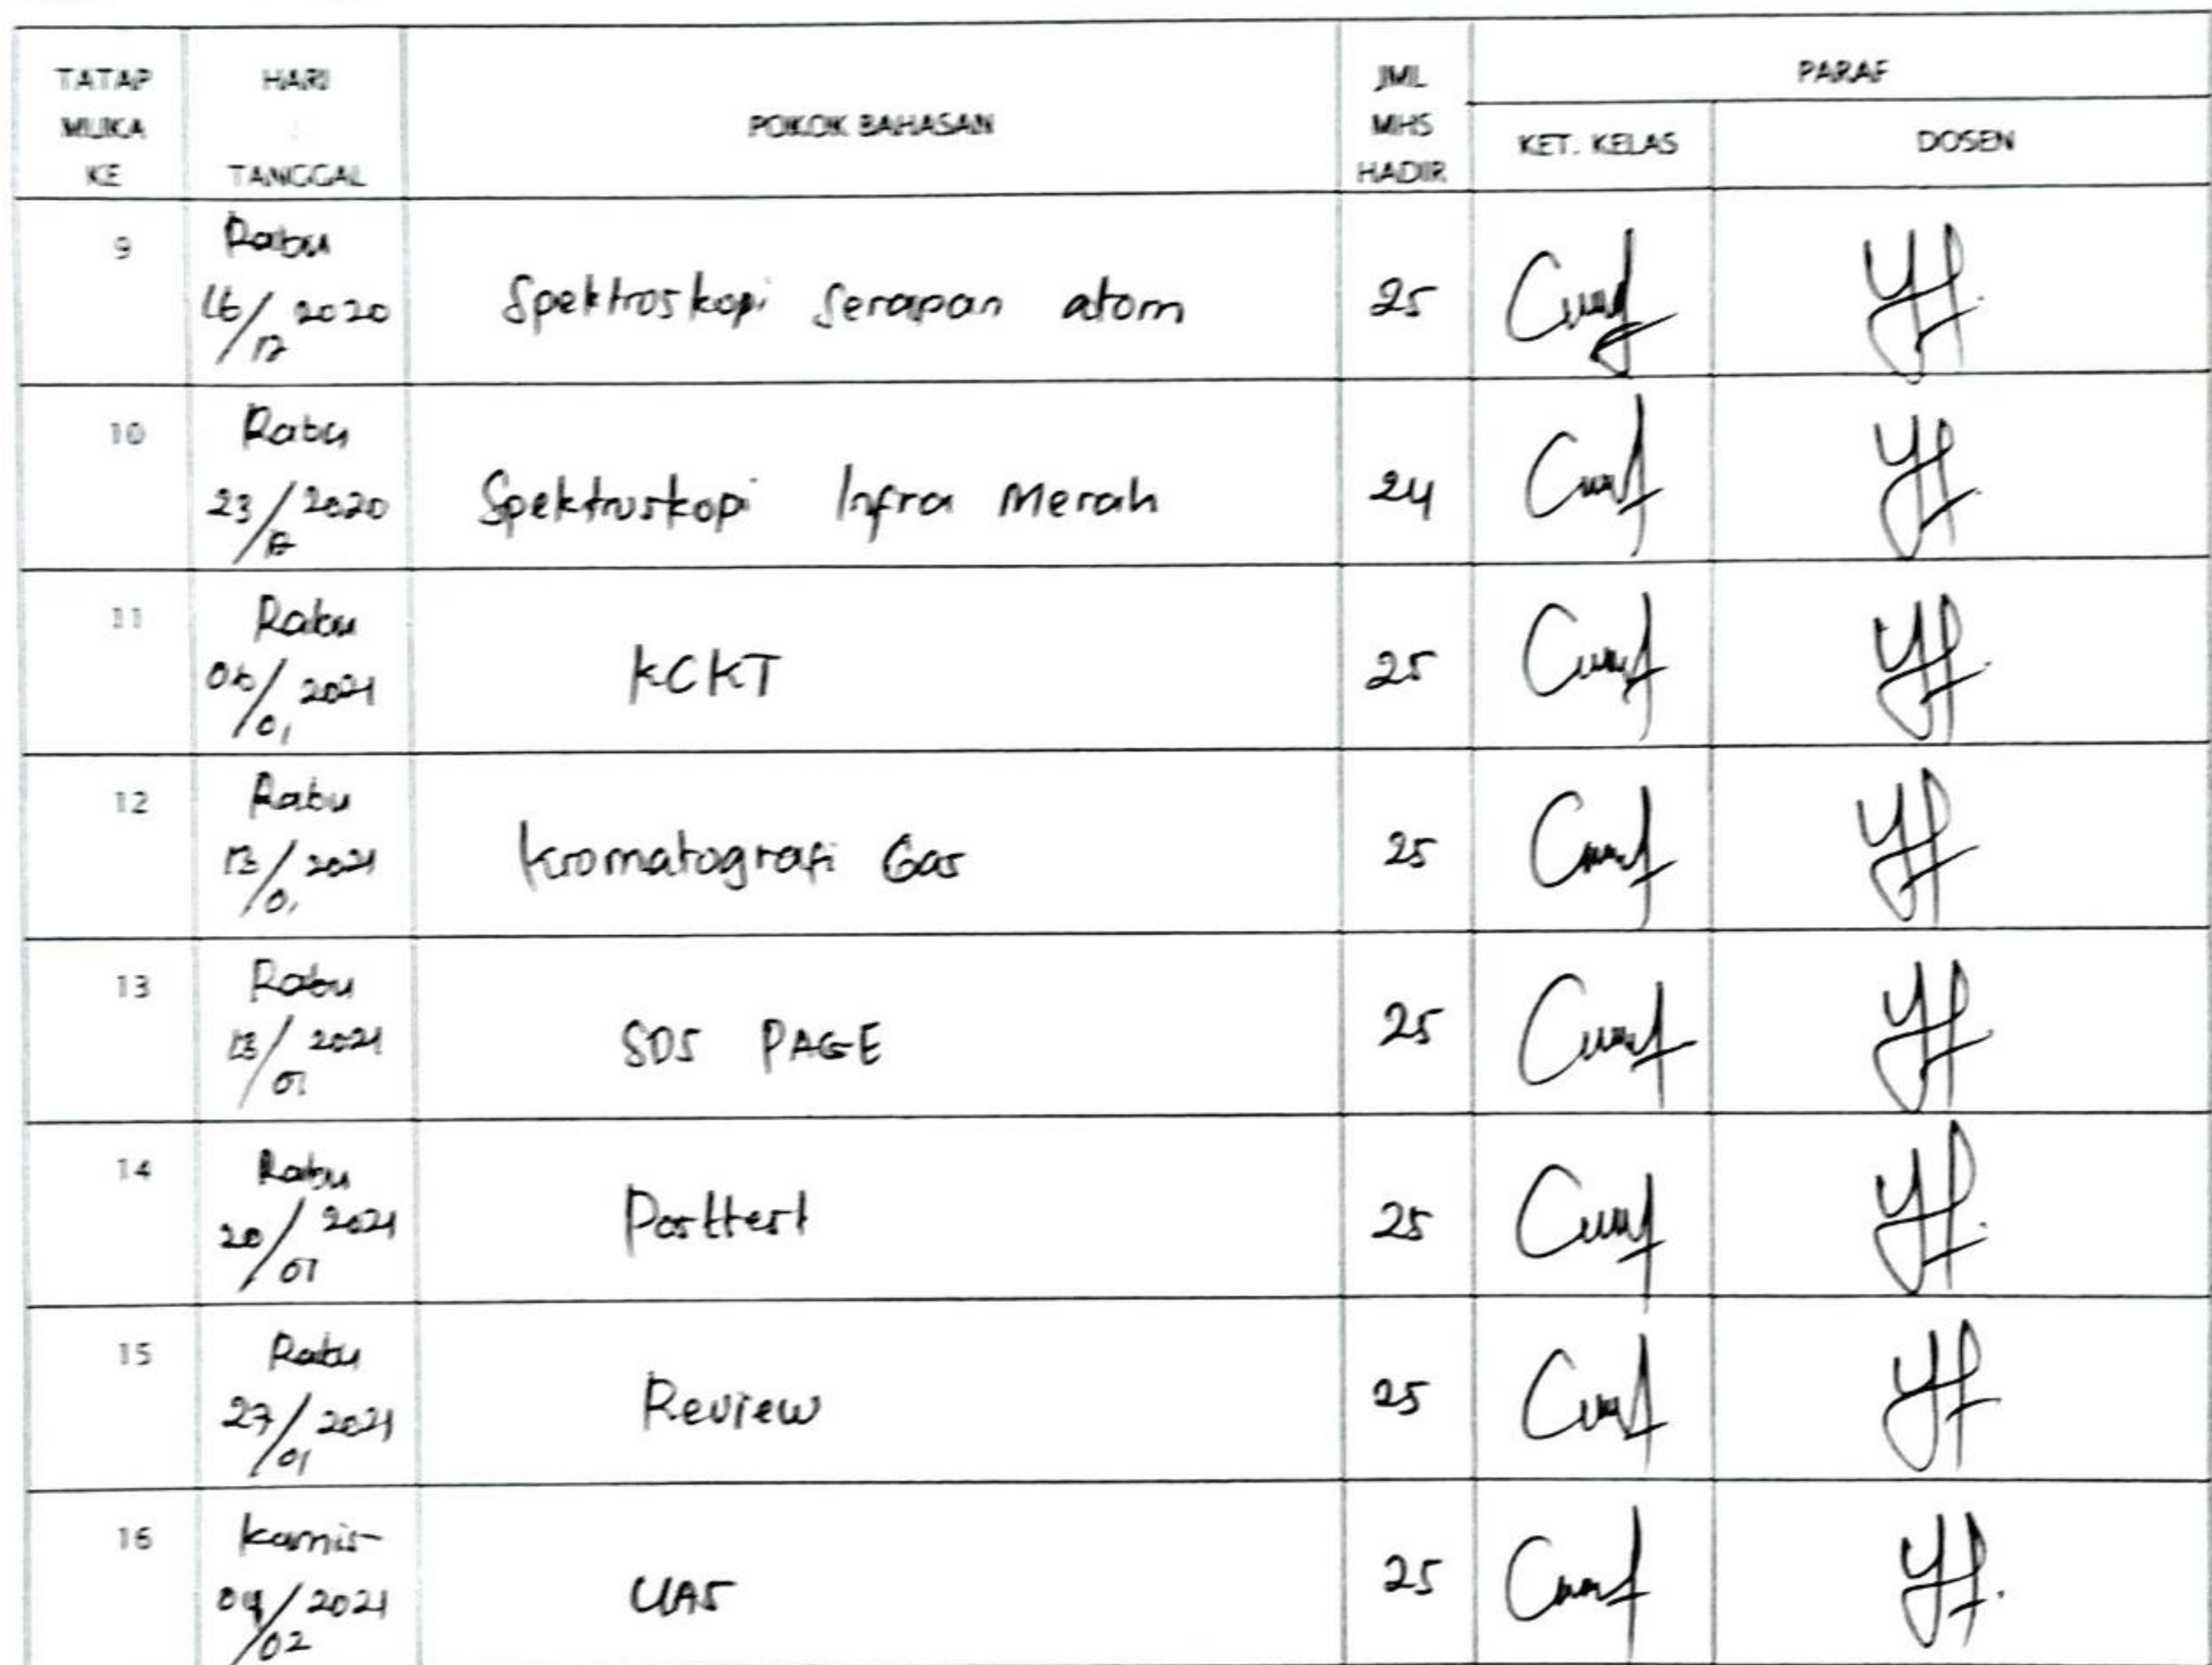 TATAP MUKA KE | HARI / TANGGAL | POKOK BAHASAN | JML MHS HADIR | PARAF
KET. KELAS | DOSEN
9 | Rabu 16/12 2020 | Spektroskopi Serapan atom | 25
10 | Rabu 23/12 2020 | Spektroskopi Infra Merah | 24
11 | Rabu 06/01 2021 | KCKT | 25
12 | Rabu 13/01 2021 | Kromatografi Gas | 25
13 | Rabu 13/01 2021 | SDS PAGE | 25
14 | Rabu 20/01 2021 | Posttest | 25
15 | Rabu 27/01 2021 | Review | 25
16 | Kamis 04/02 2021 | UAS | 25